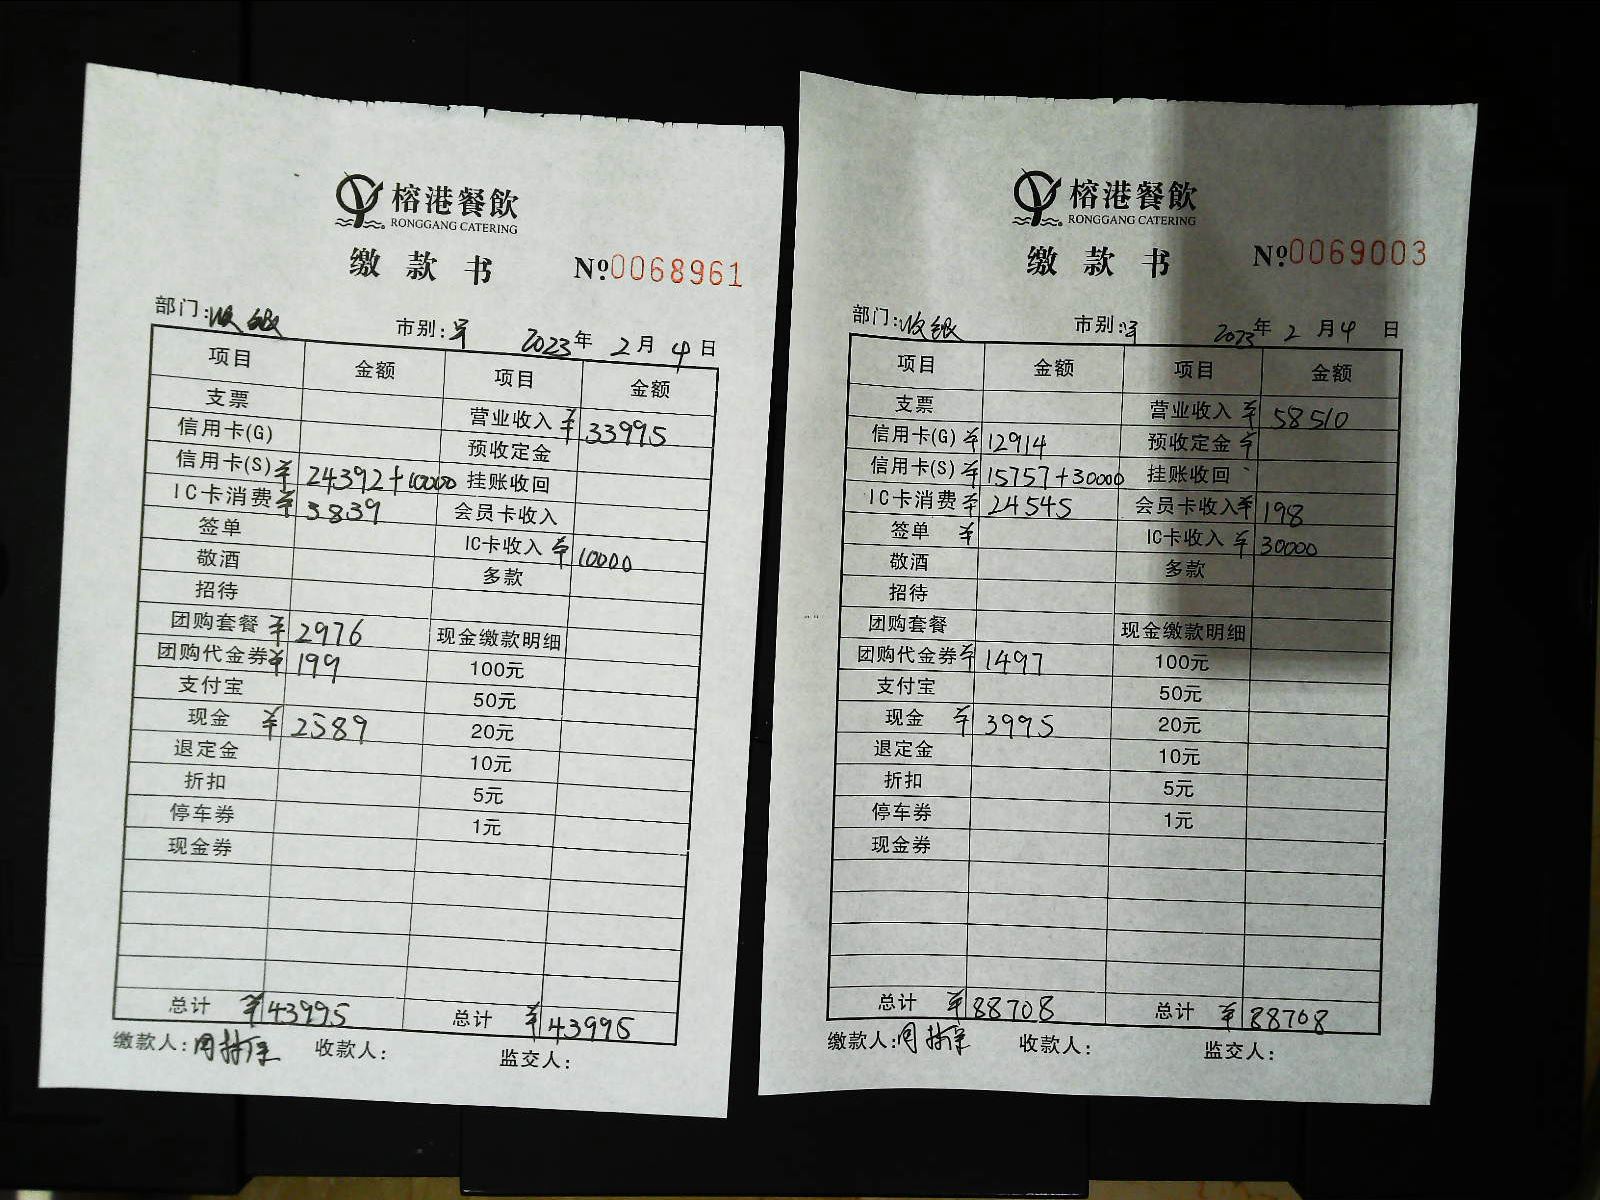 榕港餐飲
RONGGANG CATERING
缴款书
№0068961
部门:收银 市别: 2023年2月4日
项目 金额 项目 金额
支票 营业收入 ¥33995
信用卡(G) 预收定金
信用卡(S) ¥24392+10000 挂账收回
IC卡消费 ¥3839 会员卡收入
签单 IC卡收入 ¥10000
敬酒 多款
招待
团购套餐 ¥2976 现金缴款明细
团购代金券 ¥199 100元
支付宝 50元
现金 ¥2589 20元
退定金 10元
折扣 5元
停车券 1元
现金券
总计 ¥43995 总计 ¥43995
缴款人: 收款人: 监交人:
榕港餐飲
RONGGANG CATERING
缴款书
№0069003
部门:收银 市别: 2023年2月4日
项目 金额 项目 金额
支票 营业收入 ¥58510
信用卡(G) ¥12914 预收定金 ¥
信用卡(S) ¥15757+30000 挂账收回
IC卡消费 ¥24545 会员卡收入 ¥198
签单 ¥ IC卡收入 ¥30000
敬酒 多款
招待
团购套餐 现金缴款明细
团购代金券 ¥1497 100元
支付宝 50元
现金 ¥3995 20元
退定金 10元
折扣 5元
停车券 1元
现金券
总计 ¥88708 总计 ¥88708
缴款人: 收款人: 监交人: